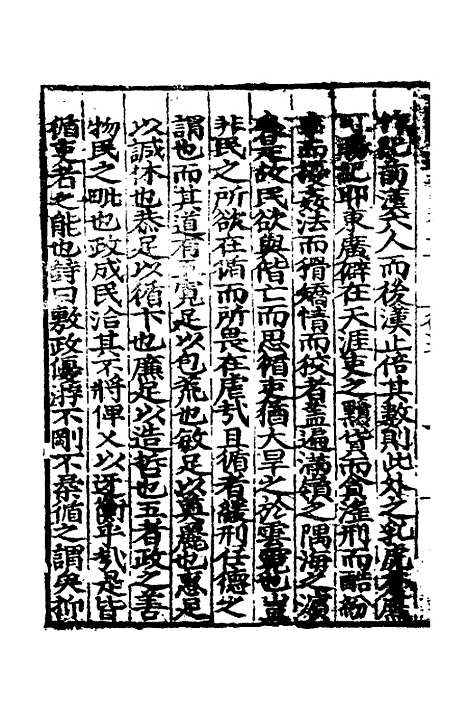 作紀前漢六人而後漢止倍其數則此外之乳虎蒼鷹
可勝記耶東廣僻在天涯吏之黷貨而貪淫刑而酷紛
法而猾矯情而狡者蓋遍滿嶺之隅海之濱
是故民欲與偕亡而思循吏猶大旱之於雲霓也豈
非民之所欲在循而所畏在虐哉且循者緩刑任德之
謂也而其道有五寬足以包荒也敏足以也惠足
以諴休也恭足以循下也廉足以造哲也五者政之善
物民之毗也政成民治其不將俾乂以迓衡平哉是皆
循吏者之能也詩曰敷政優游不剛不柔循之謂矣仰